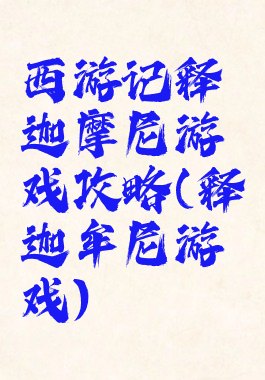 西游记释
迦摩尼游
戏攻略(释
迦牟尼游
戏)